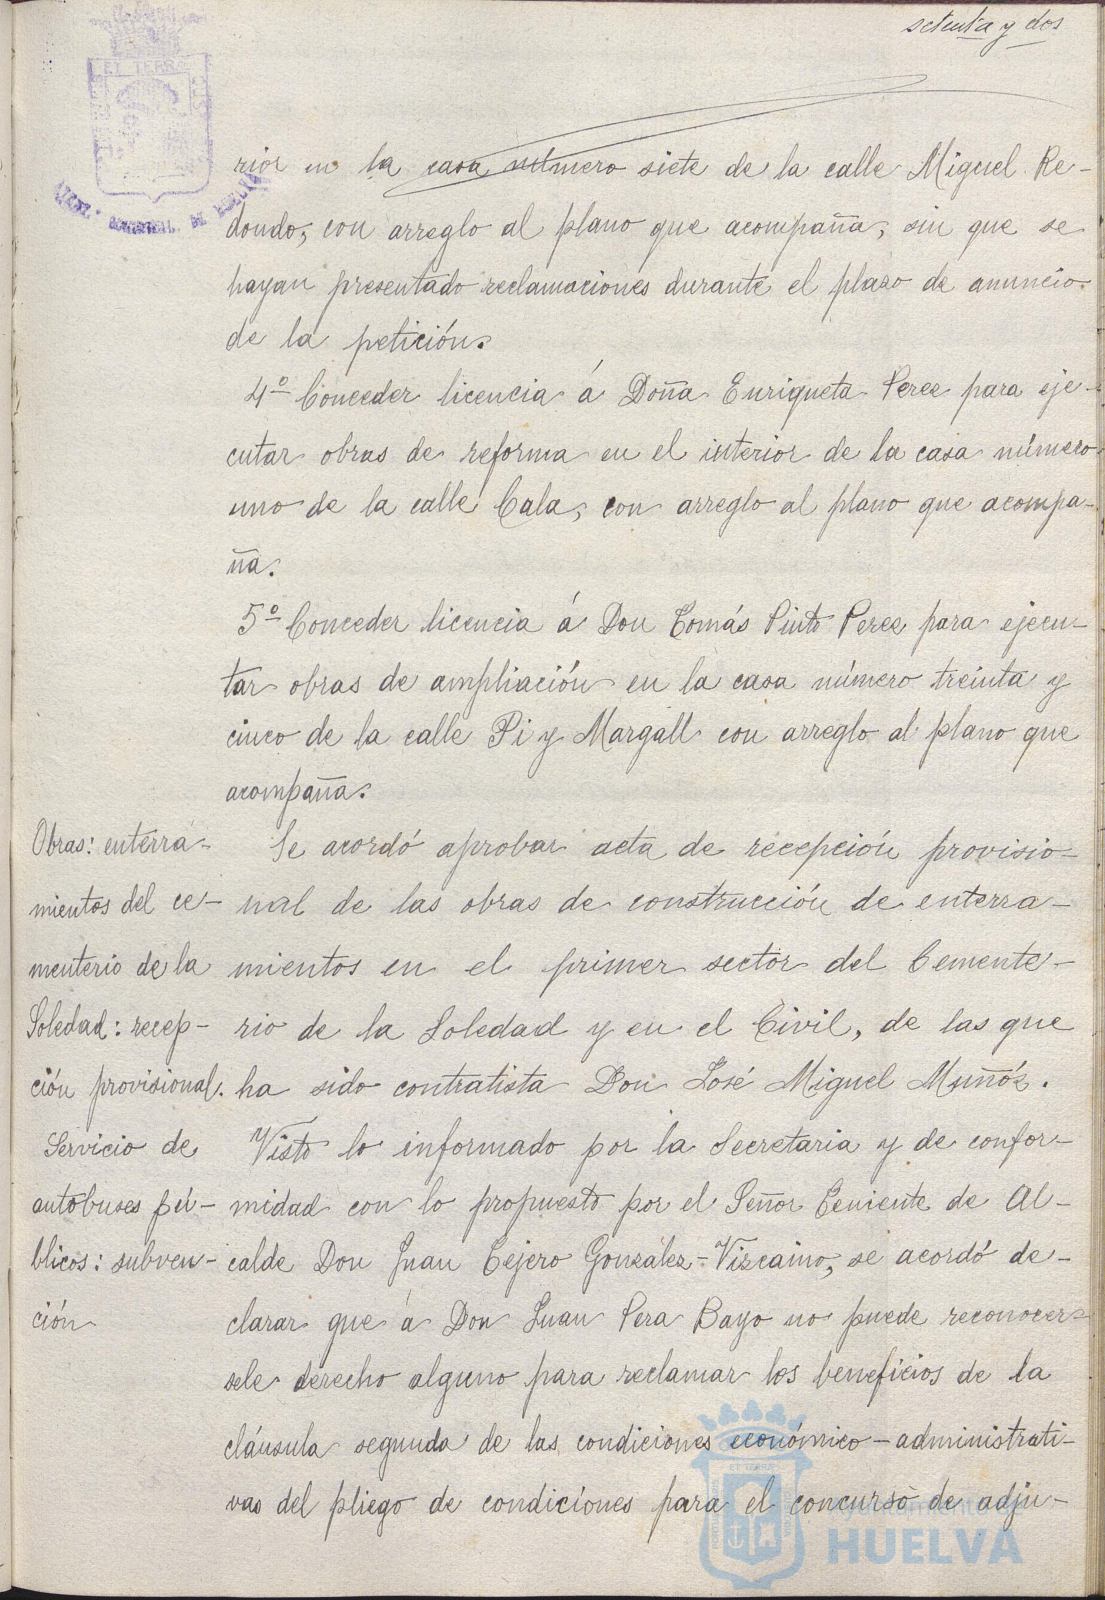 setenta y dos
rior en la casa número siete de la calle Miguel Re-
dondo, con arreglo al plano que acompaña, sin que se
hayan presentado reclamaciones durante el plazo de anuncio
de la petición.
4º Conceder licencia á Doña Enriqueta Perez para eje-
cutar obras de reforma en el interior de la casa número
uno de la calle Cala, con arreglo al plano que acompa-
ña.
5º Conceder licencia á Don Tomás Pinto Perez para ejecu-
tar obras de ampliación en la casa número treinta y
cinco de la calle Pi y Margall con arreglo al plano que
acompaña.
Obras: enterra-
mientos del ce-
menterio de la
Soledad: recep-
ción provisional.
Se acordó aprobar acta de recepción provisio-
nal de las obras de construcción de enterra-
mientos en el primer sector del Cemente-
rio de la Soledad y en el Civil, de las que
ha sido contratista Don José Miguel Muñóz.
Servicio de
autobuses pú-
blicos: subven-
ción
Visto lo informado por la Secretaria y de confor-
midad con lo propuesto por el Señor Teniente de Al-
calde Don Juan Tejero González-Vizcaino, se acordó de-
clarar que á Don Juan Pera Bayo no puede reconocer-
sele derecho alguno para reclamar los beneficios de la
cláusula segunda de las condiciones económico-administrati-
vas del pliego de condiciones para el concurso de adju-
Ayuntamiento de
HUELVA